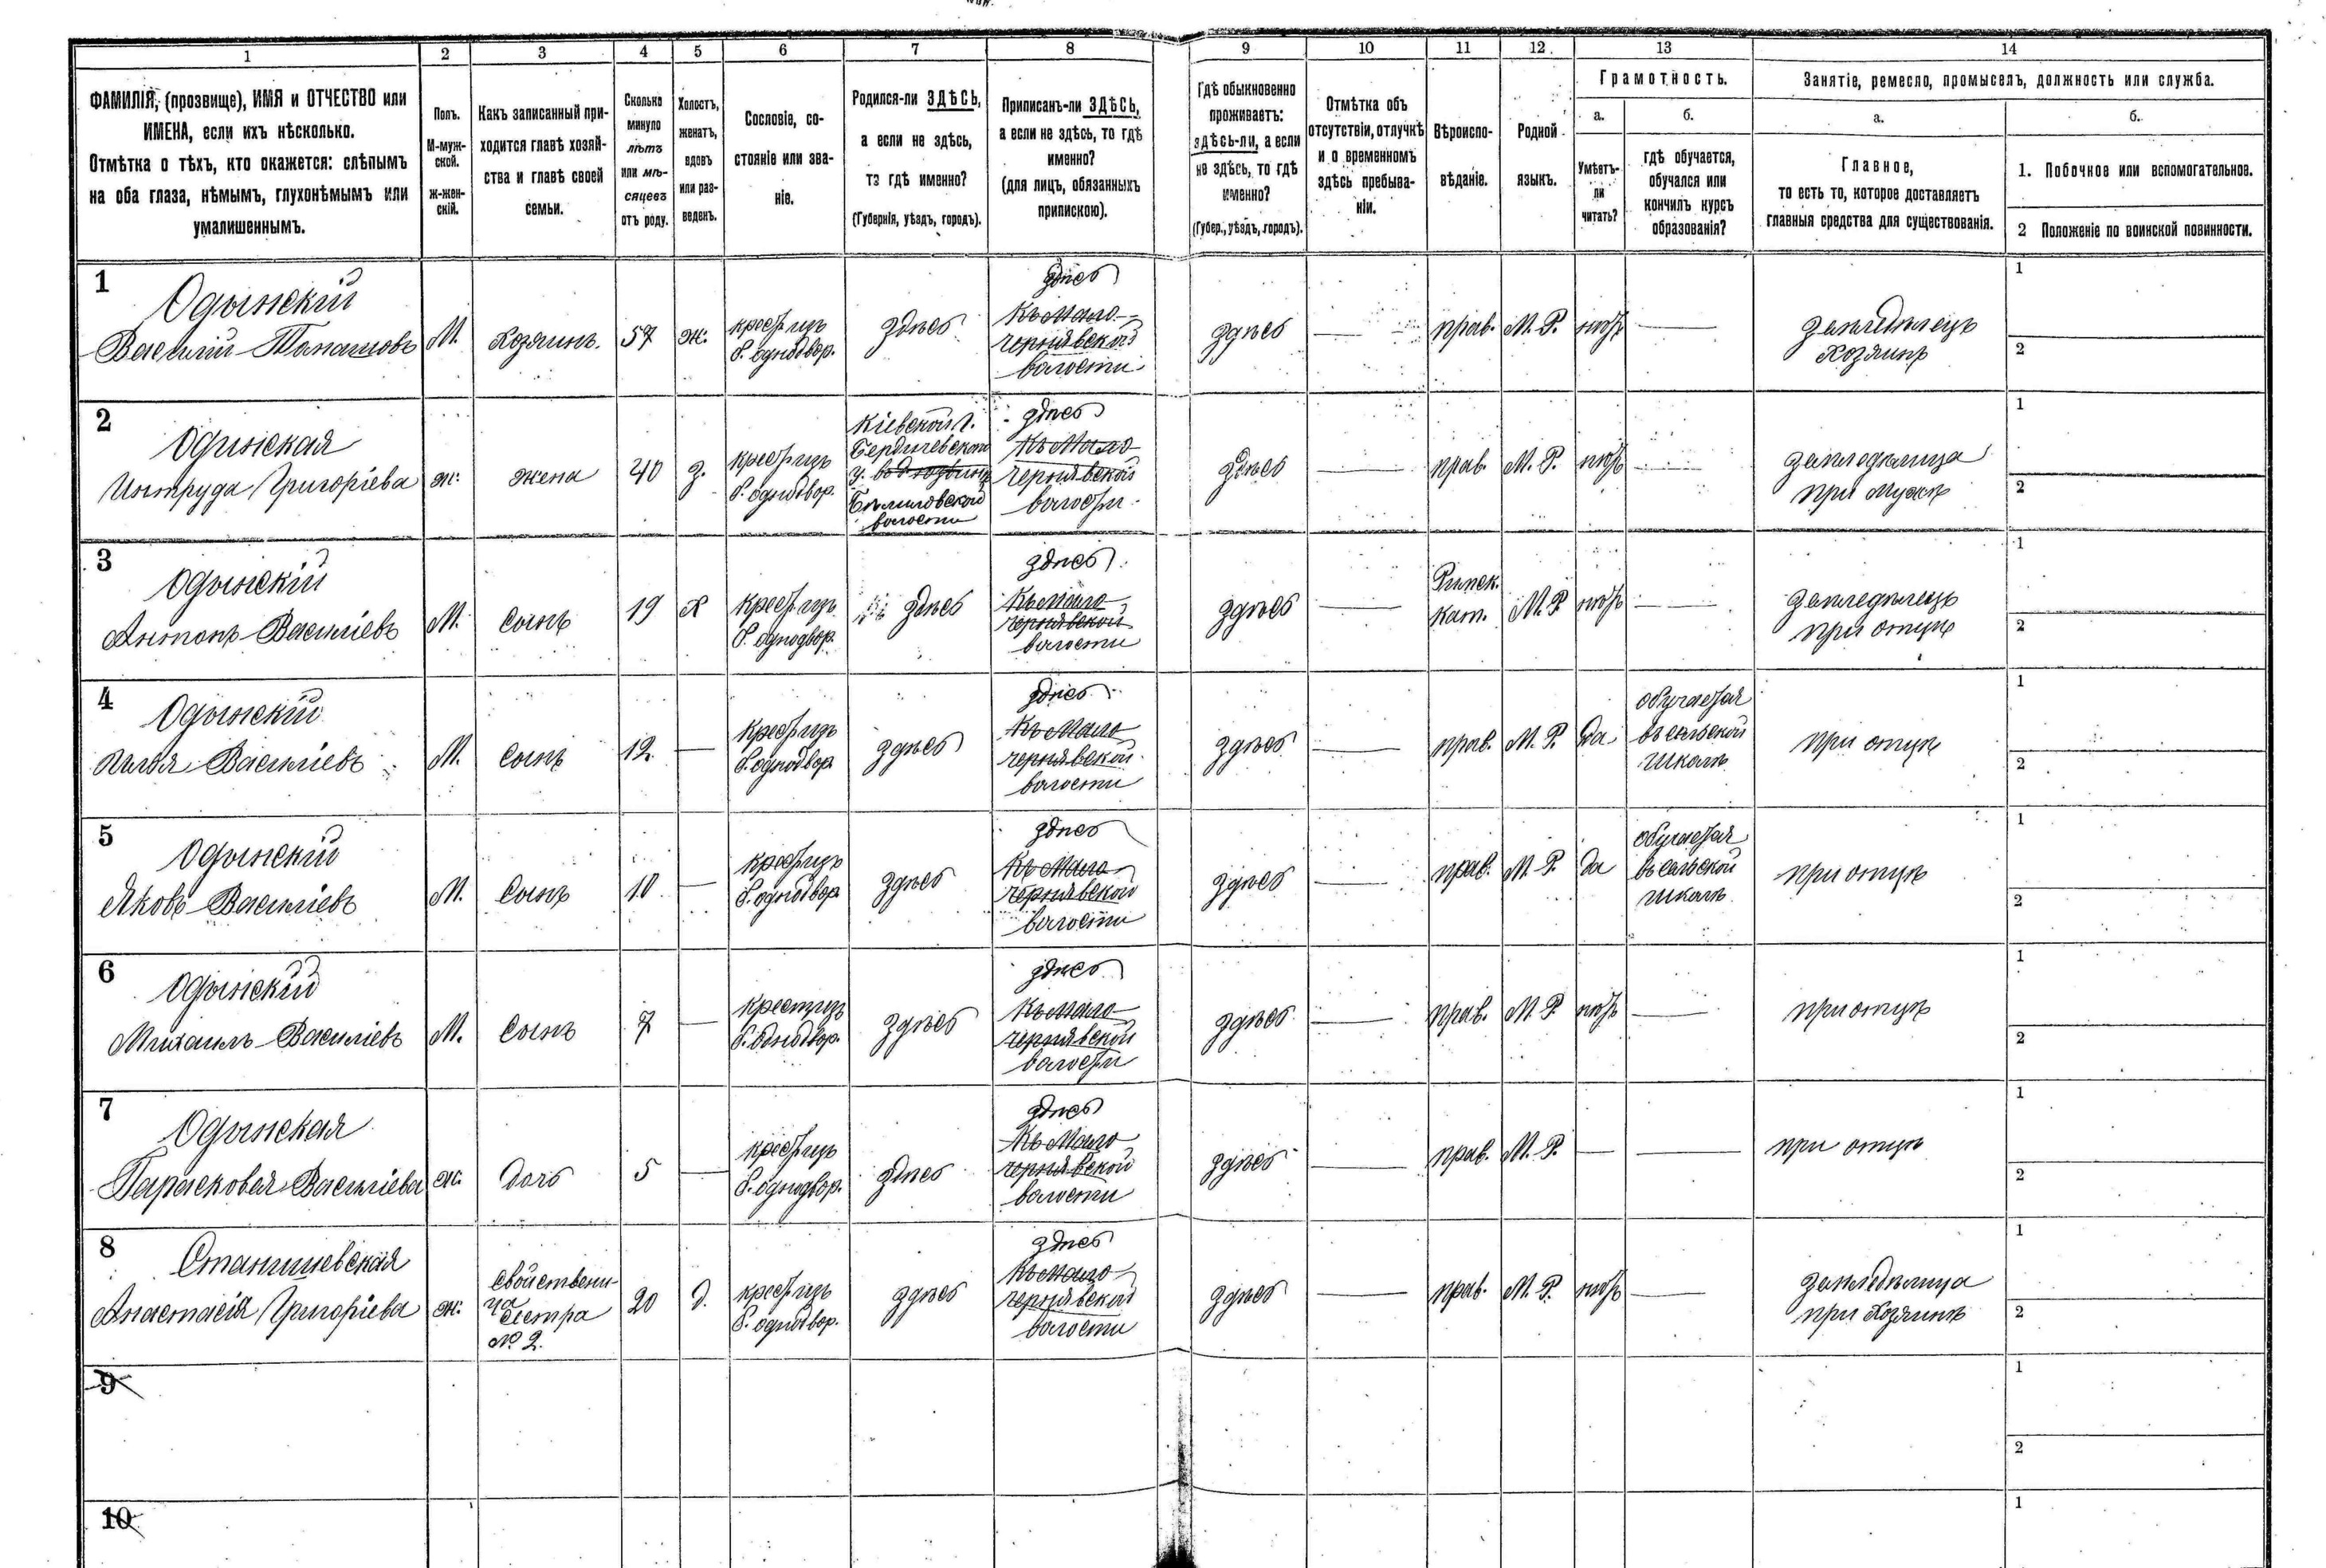 1 2 3 4 5 6 7 8 9 10 11 12. 13 14
ФАМИЛІЯ, (прозвище), ИМЯ и ОТЧЕСТВО или
ИМЕНА, если ихъ нѣсколько.
Отмѣтка о тѣхъ, кто окажется: слѣпымъ
на оба глаза, нѣмымъ, глухонѣмымъ или
умалишеннымъ.
Полъ.
М-муж-
ской.
ж-жен-
скій.
Какъ записанный при-
ходится главѣ хозяй-
ства и главѣ своей
семьи.
Сколько
минуло
лѣтъ
или мѣ-
сяцевъ
отъ роду.
Холостъ,
женатъ,
вдовъ
или раз-
веденъ.
Сословіе, со-
стояніе или зва-
ніе.
Родился-ли ЗДѢСЬ,
а если не здѣсь,
то гдѣ именно?
(Губернія, уѣздъ, городъ).
Приписанъ-ли ЗДѢСЬ,
а если не здѣсь, то гдѣ
именно?
(для лицъ, обязанныхъ
припискою).
Гдѣ обыкновенно
проживаетъ:
здѣсь-ли, а если
не здѣсь, то гдѣ
именно?
(Губер., уѣздъ, городъ).
Отмѣтка объ
отсутствіи, отлучкѣ
и о временномъ
здѣсь пребыва-
ніи.
Вѣроиспо-
вѣданіе.
Родной
языкъ.
Грамотность.
а.
Умѣетъ-
ли
читать?
б.
гдѣ обучается,
обучался или
кончилъ курсъ
образованія?
Занятіе, ремесло, промыселъ, должность или служба.
а.
Главное,
то есть то, которое доставляетъ
главныя средства для существованія.
б.
1. Побочное или вспомогательное.
2 Положеніе по воинской повинности.
1
Одынскій
Василий Танашовъ
М.
Хозяинъ.
57
ж.
крест. изъ
б. однодвор.
здѣсь
здѣсь
Къ Мало-
чернявской
волости
здѣсь
прав.
М. Р.
нѣтъ
земледѣлецъ
Хозяинъ
1
2
2
Одынская
Интруда Григоріева
ж.
жена
40
з.
крест. изъ
б. однодвор.
Кіевской г.
Бердичевского
у.
Бѣлиловской
волости
здѣсь
Къ Мало
чернявской
волости
здѣсь
прав.
М. Р.
нѣтъ
земледѣлица
при мужѣ
1
2
3
Одынскій
Антонъ Василіевъ
М.
Сынъ
19
Х
крест. изъ
б. однодвор.
здѣсь
здѣсь
Къ Мало
чернявской
волости
здѣсь
Римск.
кат.
М. Р
нѣтъ
земледѣлецъ
при отцѣ
1
2
4
Одынскій
Илья Василіевъ
М.
Сынъ
12
крест. изъ
б. однодвор
здѣсь
здѣсь
Къ Мало
чернявской
волости
здѣсь
прав.
М. Р.
да
обучается
въ сельской
школѣ
при отцѣ
1
2
5
Одынскій
Яковъ Василіевъ
М.
Сынъ
10
крест. изъ
б. однодвор
здѣсь
здѣсь
Къ Мало
чернявской
волости
здѣсь
прав.
М. Р.
да
обучается
въ сельской
школѣ
при отцѣ
1
2
6
Одынский
Михаилъ Василіевъ
М.
Сынъ
7
крест. изъ
б. однодвор.
здѣсь
здѣсь
Къ Мало
чернявской
волости
здѣсь
прав.
М. Р
нѣтъ
при отцѣ
1
2
7
Одынская
Парасковея Василіева
ж.
дочь
5
крест. изъ
б. однодвор.
здѣсь
здѣсь
Къ Мало
чернявской
волости
здѣсь
прав.
М. Р.
при отцѣ
1
2
8
Станишевская
Анастасія Григоріева
ж.
Свойствени-
ца
сестра
№ 2.
20
д.
крест. изъ
б. однодвор.
здѣсь
здѣсь
Къ Мало
чернявской
волости
здѣсь
прав.
М. Р.
нѣтъ
земледѣлица
при Хозяинѣ
1
2
9
1
2
10
1